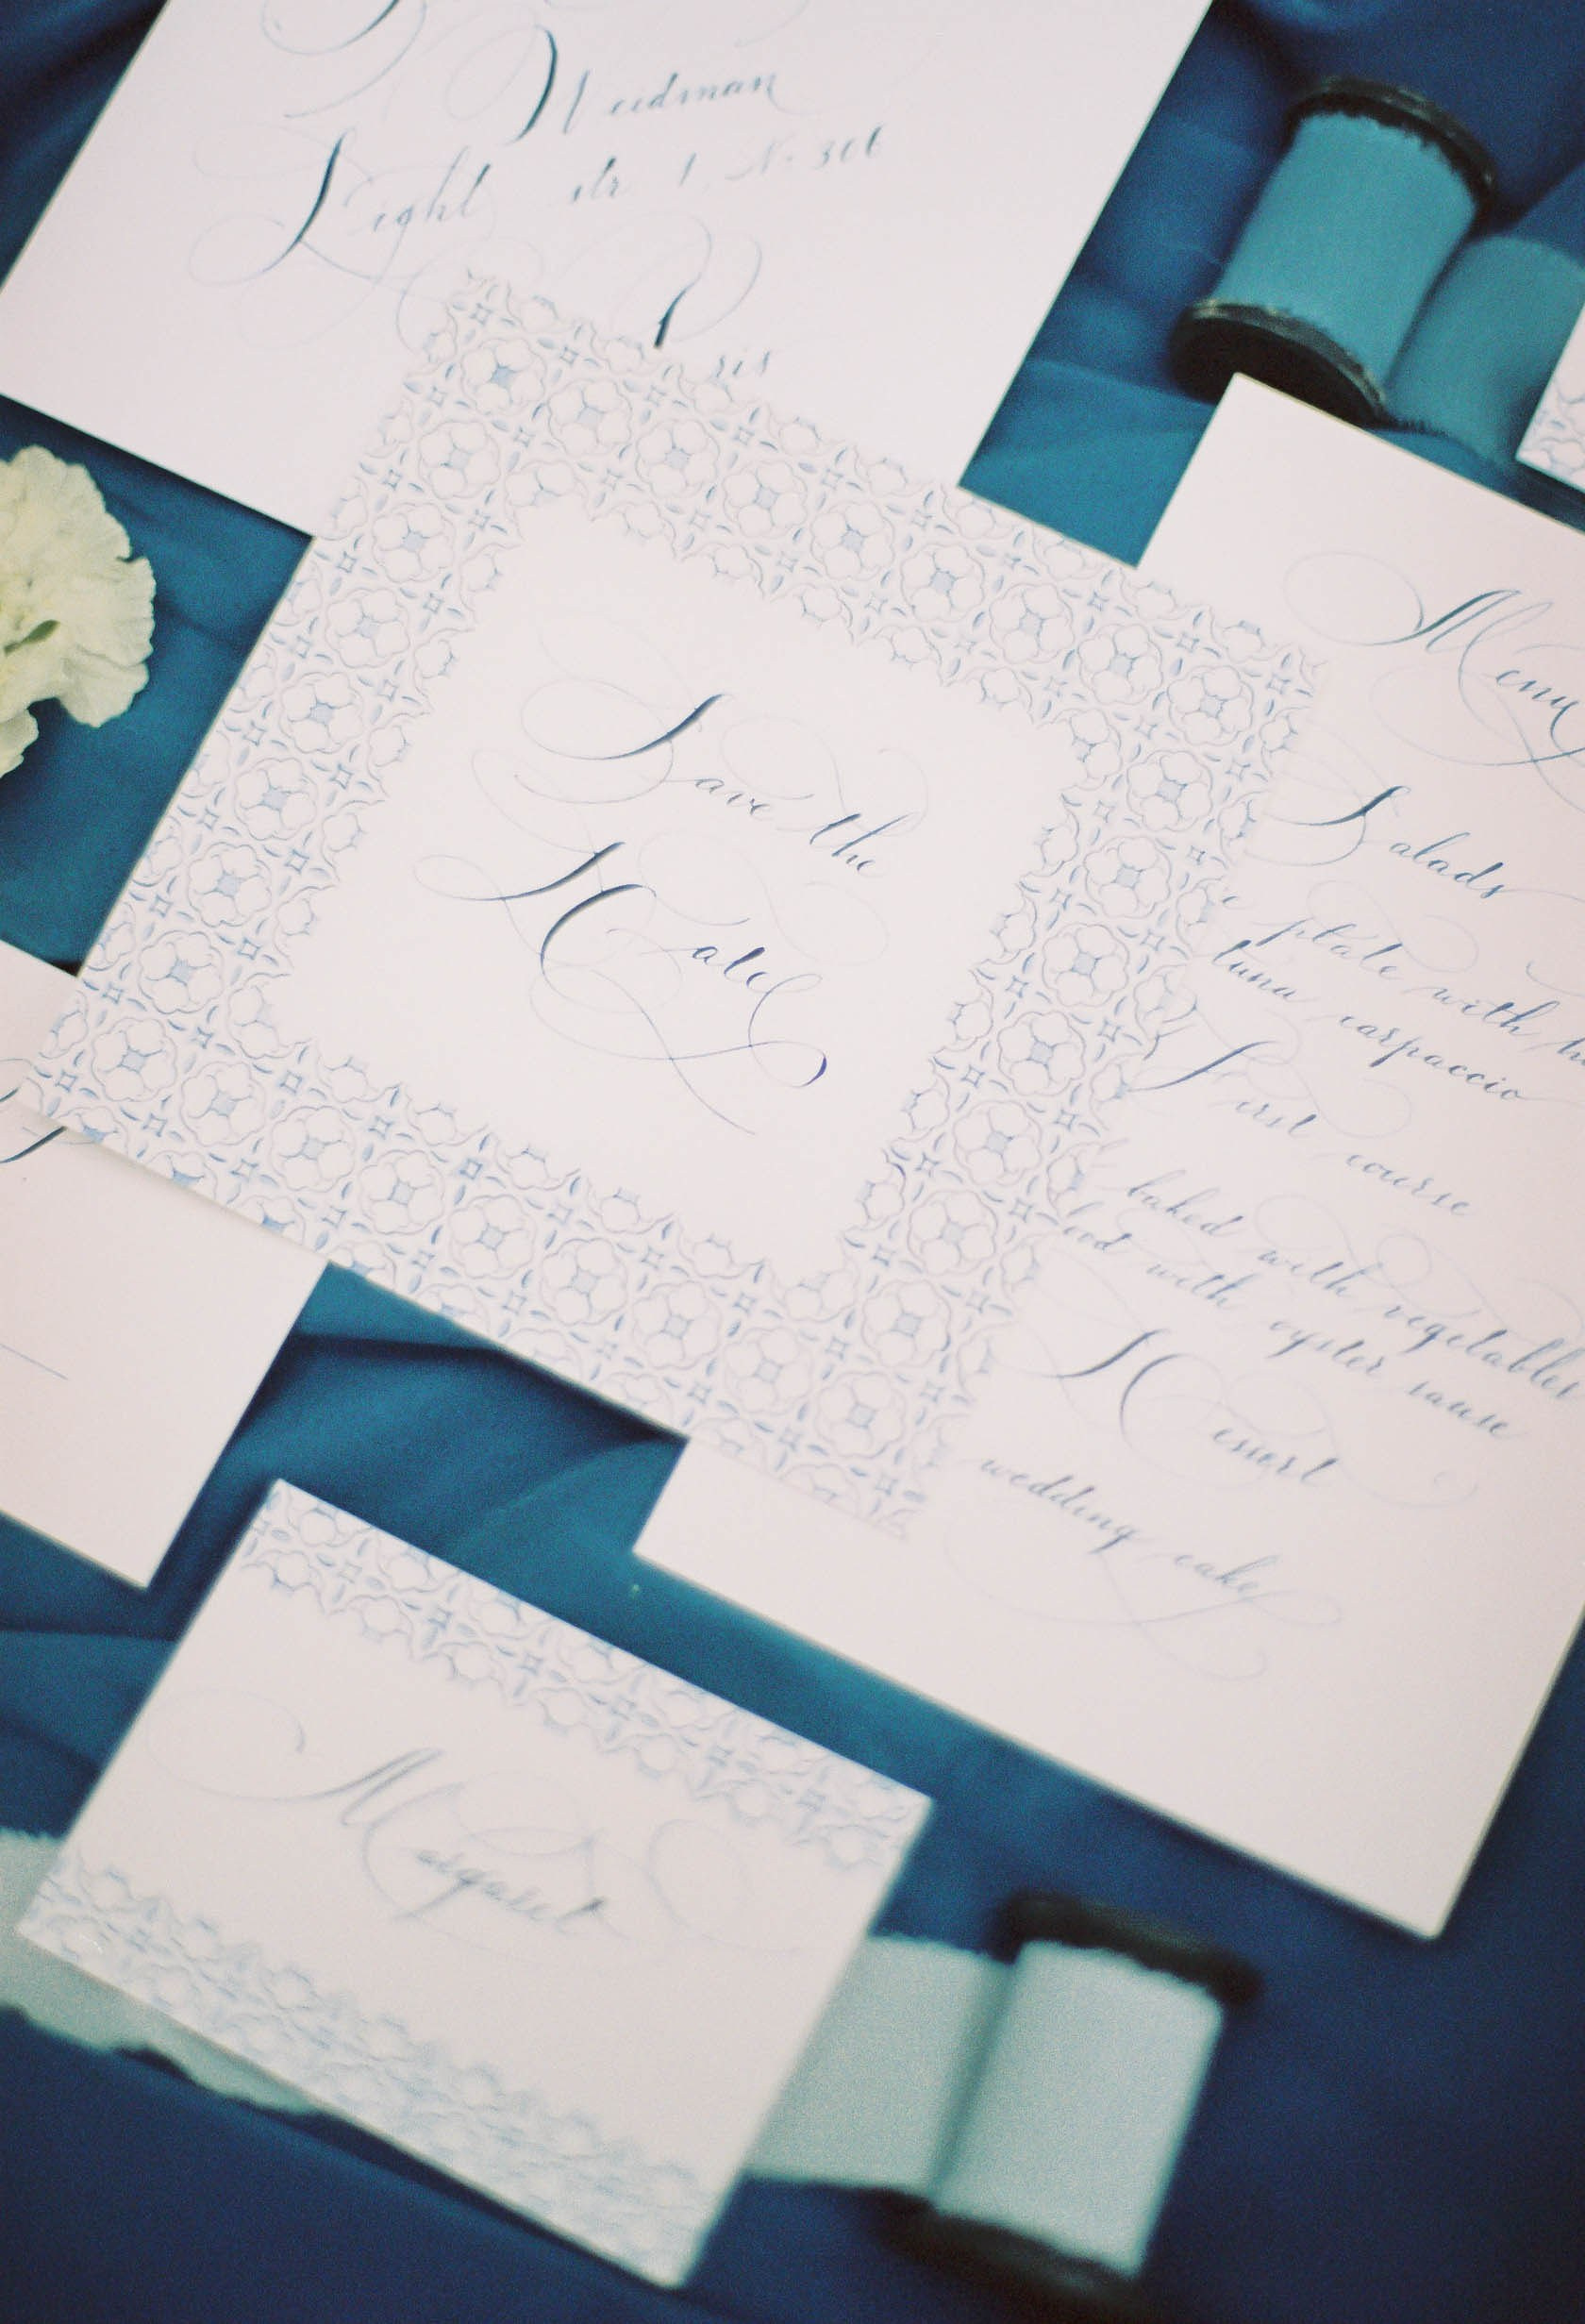 Weidman
Light str. 1, N. 306
Save the
Date
Menu
Salads
plate with
tuna carpaccio
First course
baked with vegetables
with oyster sauce
Desert
wedding cake
Margaret